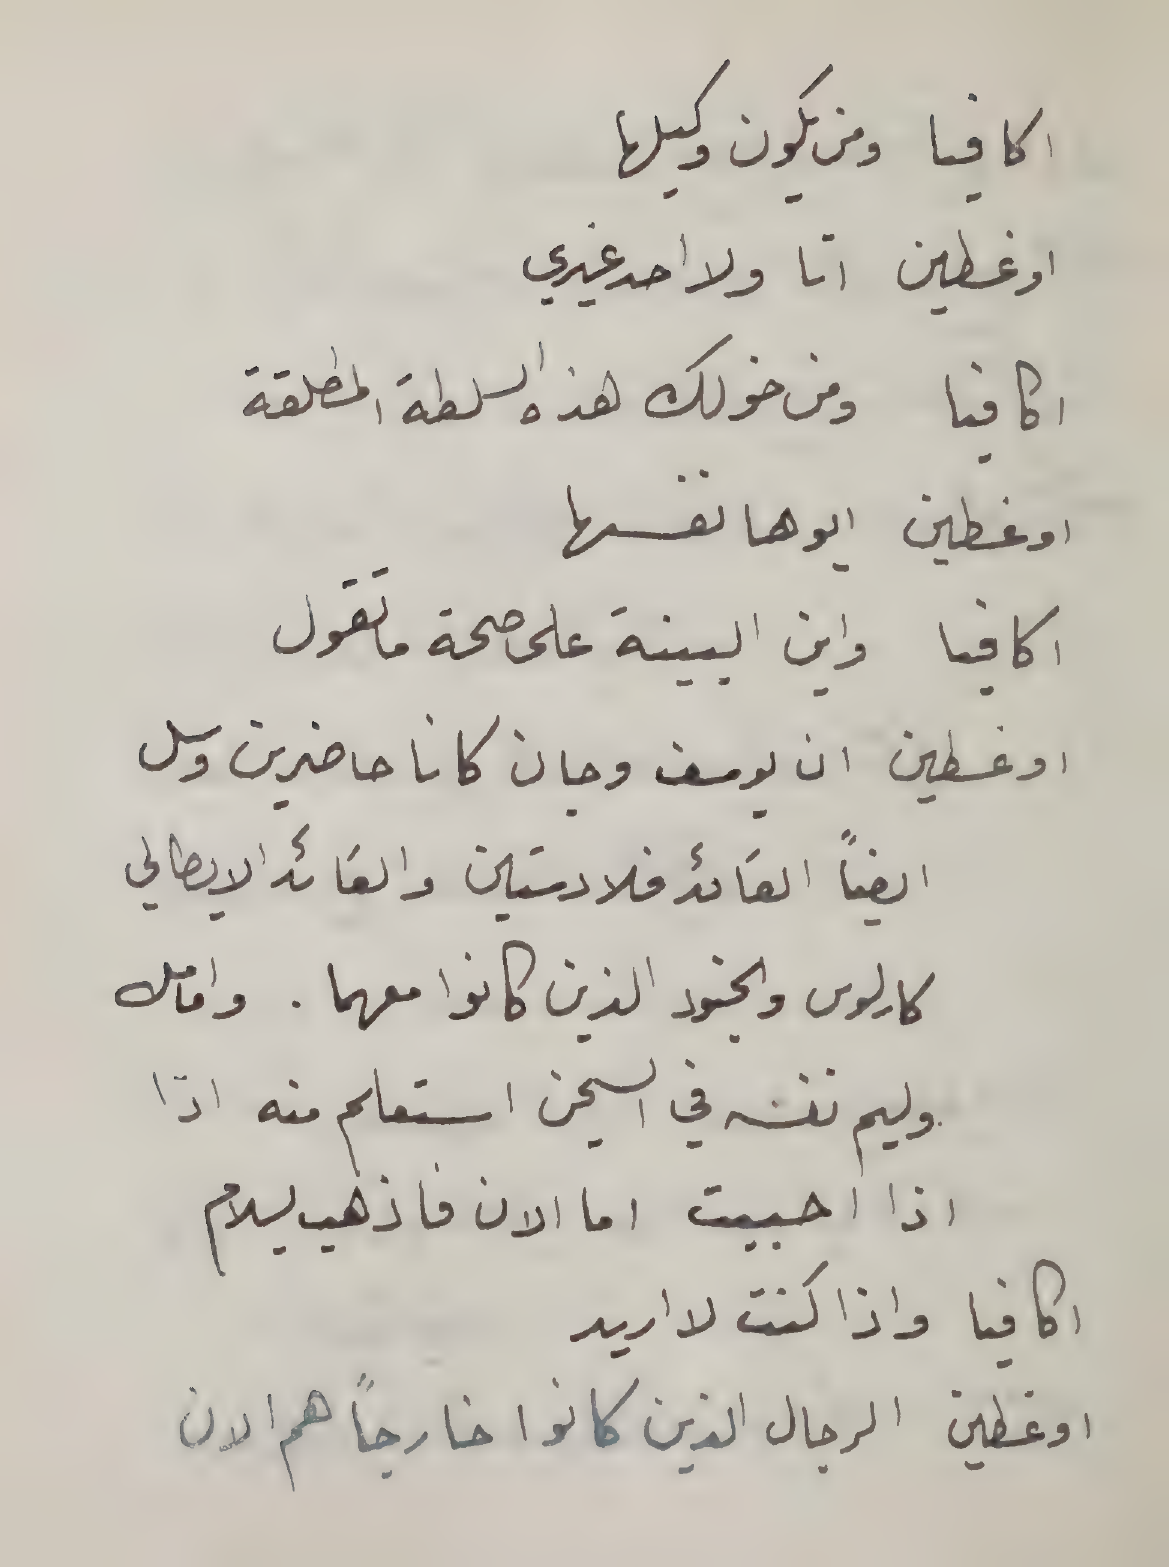 اكافيا ومن يكون وكيلها
اوغسطين انا ولا احد غيري
اكافيا ومن خولك هذه السلطة المطلقة
اوغسطين ابوها نفسها
اكافيا واين البينة على صحة ما تقول
اوغسطين ان يوسف وجان كانا حاضرين وسل
ايضاً القائد فلادستين والقائد الايطالي
كارلوس والجنود الذين كانوا معهما . وامامك
وليم نفسه في السجن استعلم منه اذا
اذا احببت اما الان فاذهب بسلام
اكافيا واذا كنت لا اريد
اوغسطين الرجال الذين كانوا خارجاً هم الان